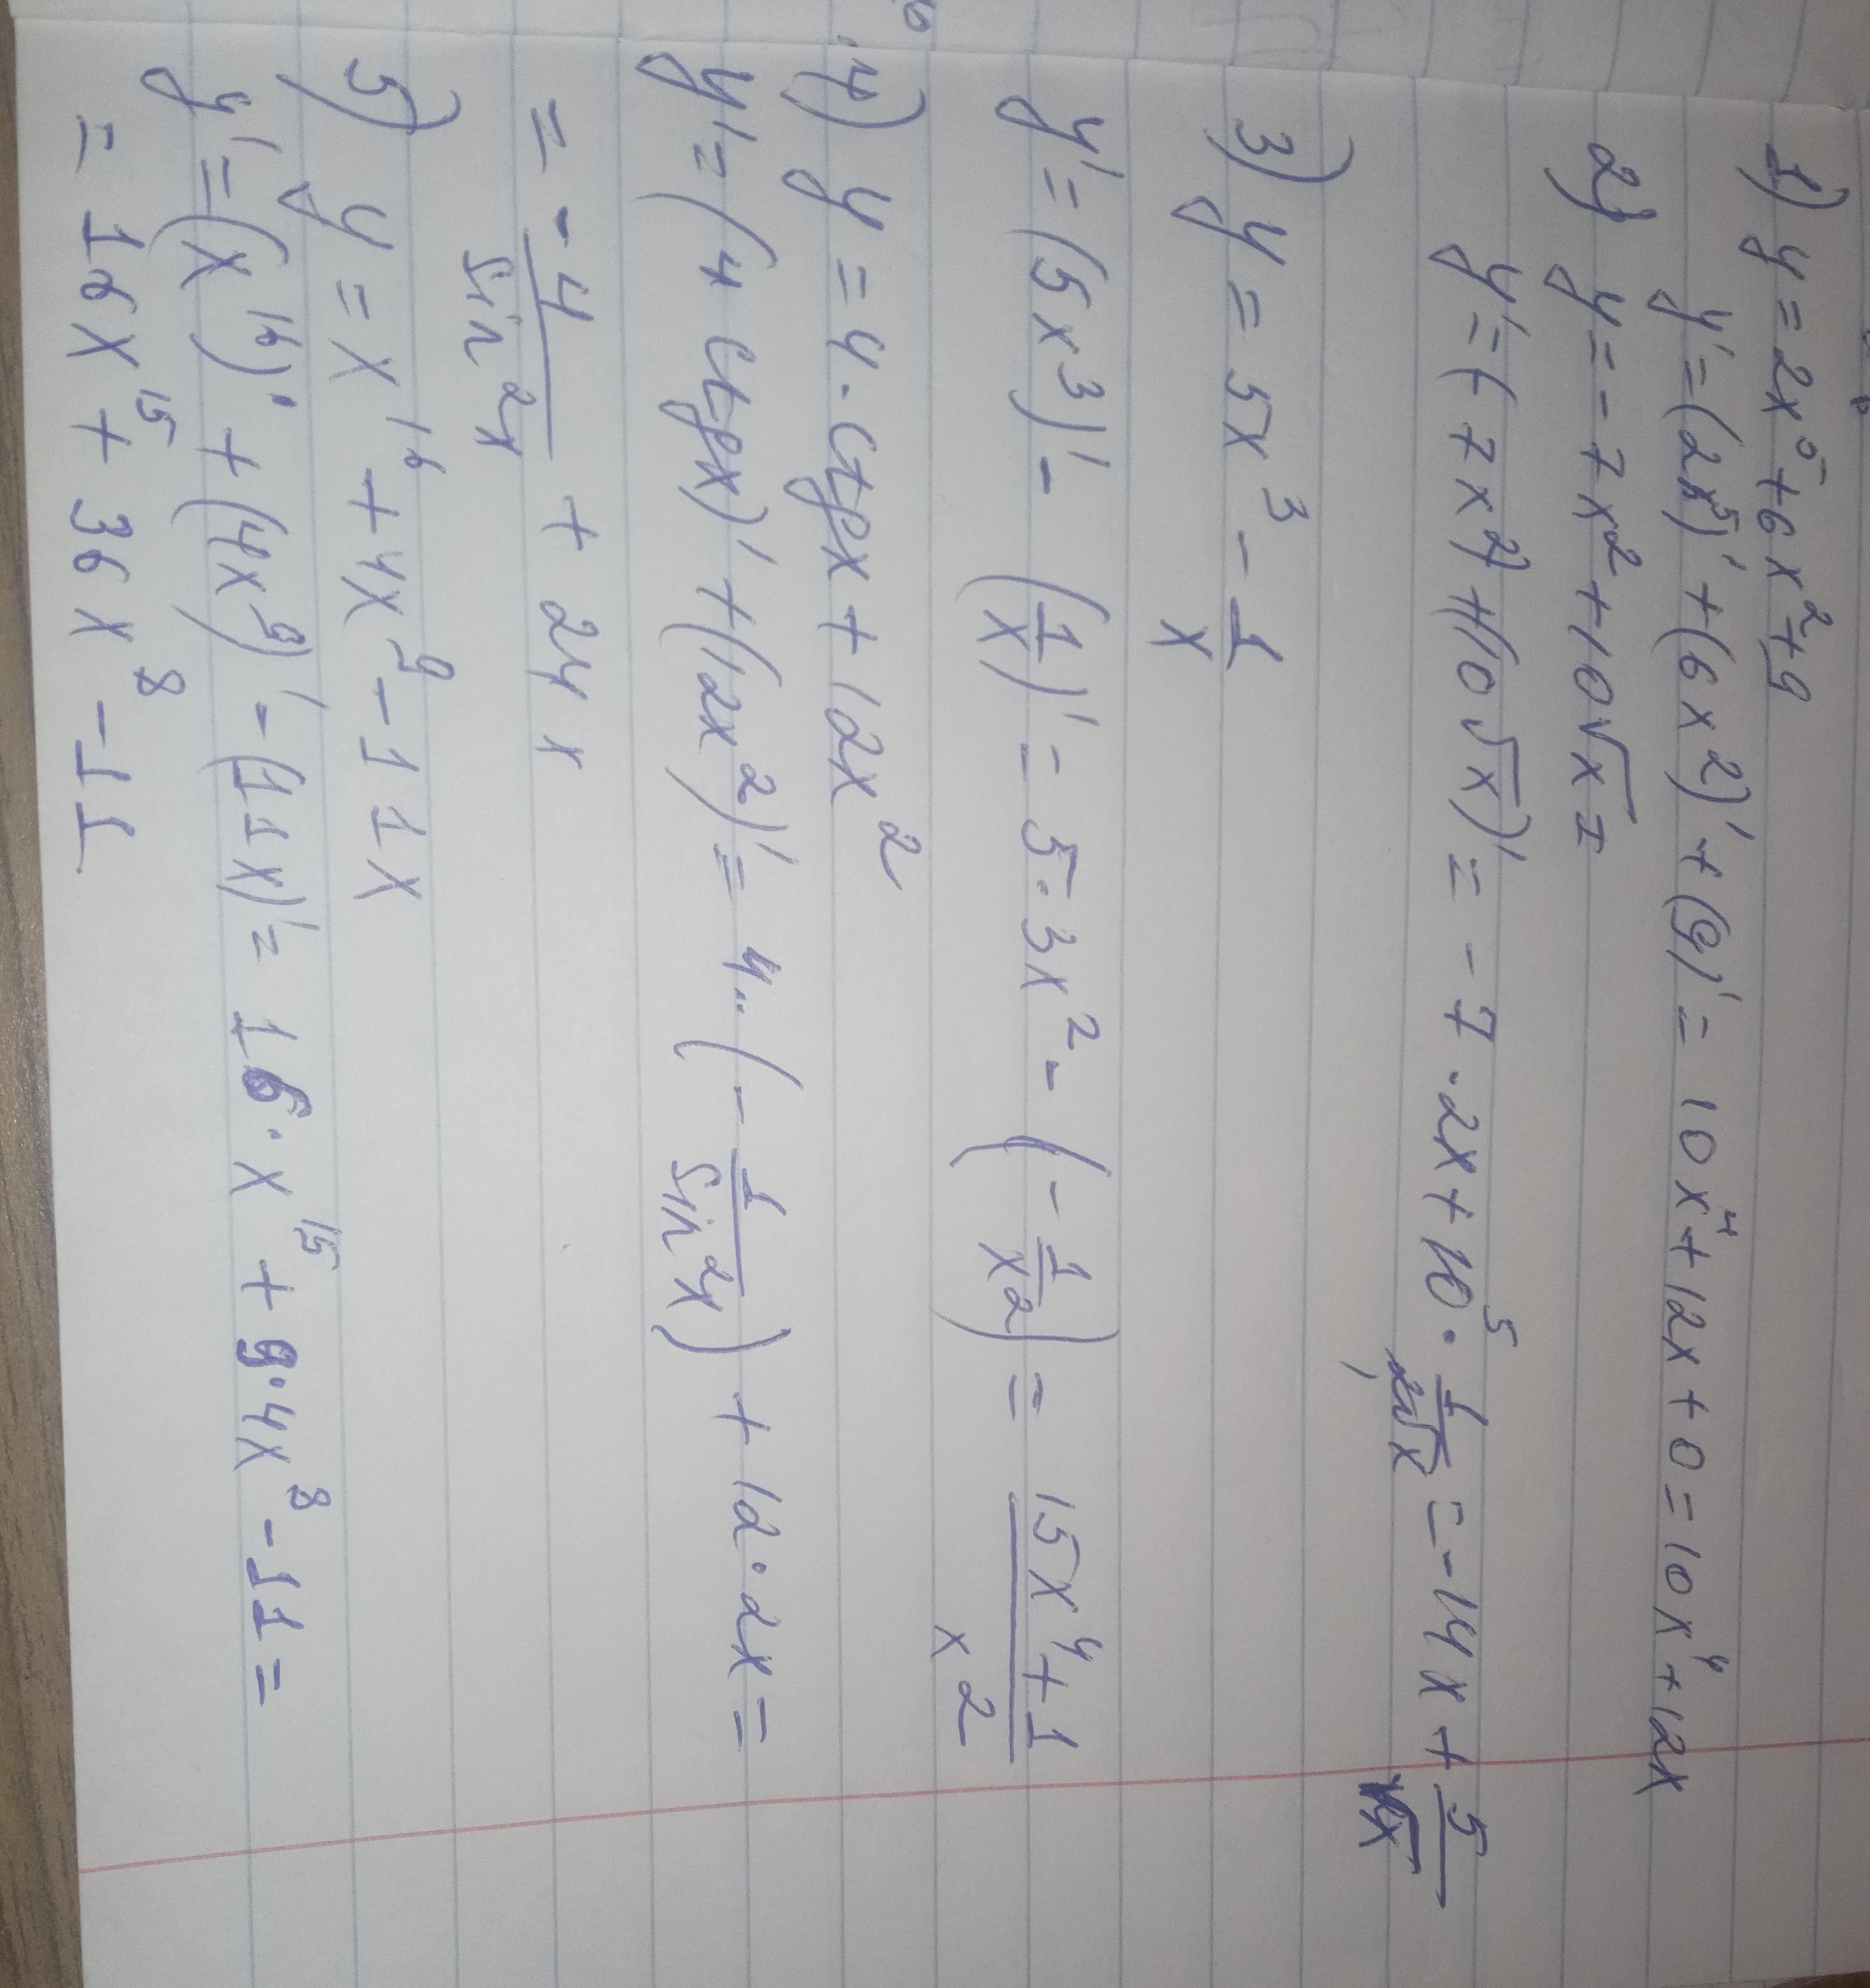 1) y = 2x⁵ + 6x² + 9
y' = (2x⁵)' + (6x²)' + (9)' = 10x⁴ + 12x + 0 = 10x⁴ + 12x
2) y = -7x² + 10√x =
y' = (-7x²) + (10√x)' = -7 · 2x + 10⁵ · 1/2√x = -14x + 5/√x
3) y = 5x³ - 1/x
y' = (5x³)' - (1/x)' = 5 · 3x² - (-1/x²) = 15x⁴ + 1/x²
4) y = 4 · ctgx + 12x²
y' = (4 ctgx)' + (12x²)' = 4 · · (-1/sin²x) + 12 · 2x =
= -4/sin²x + 24x
5) y = x¹⁶ + 4x⁹ - 11x
y' = (x¹⁶)' + (4x⁹)' - (11x)' = 16 · x¹⁵ + 9 · 4x⁸ - 11 =
= 16x¹⁵ + 36x⁸ - 11